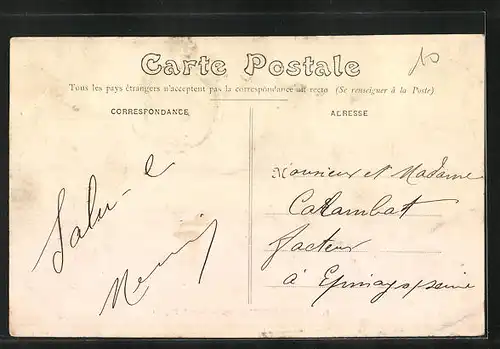 Carte Postale
Tous les pays étrangers n'acceptent pas la correspondance au recto (Se renseigner à la Poste)
CORRESPONDANCE
ADRESSE
Monsieur et Madame
Catambat
facteur
à Epinay s/ seine